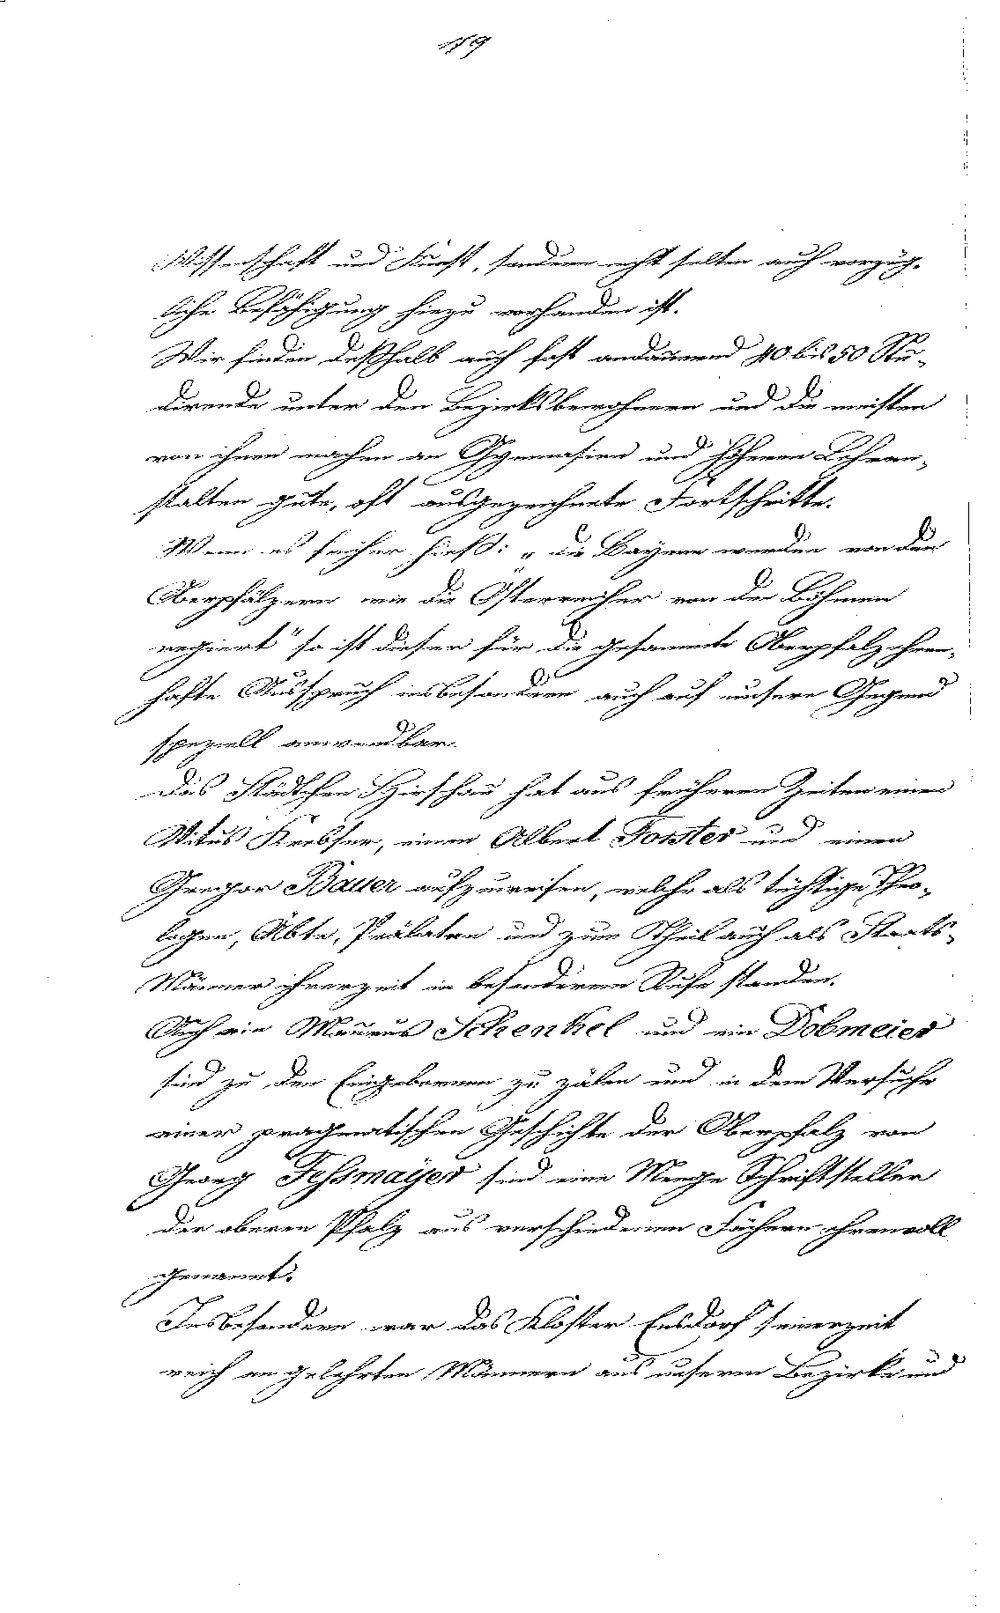 79
Wissenschaft und Kunst, sondern nicht selten auch vorzüg-
liche Befähigung hiezu vorhanden ist.
Wir finden deßhalb auch fast andauernd 40 bis 50 Stu-
dirende unter den Bezirksbewohnern und die meisten
von ihnen machen an Gymnasien und höheren Lehran-
stalten gute, oft ausgezeichnete Fortschritte.
Wenn es früher hieß: „die Bayern werden von den
Oberpfälzern wie die Österreicher von den Böhmen
regiert" so ist dieser für die gesammte Oberpfalz ehren-
hafte Ausspruch insbesondere auch auf unsere Gegend
speziell anwendbar.
Das Städtchen Hirschau hat aus früheren Zeiten einen
Vitus Krebser, einen Albert Forster und einen
Gregor Bauer aufzuweisen, welche als tüchtige Theo-
logen, Äbte, Prälaten und zum Theil auch als Staats-
Männer ihrerzeit in besonderem Rufe standen.
Auch ein Maurus Schenkel und ein Dobmeier
sind zu den Eingebornen zu zälen und in dem Versuche
einer pragmatischen Geschichte der Oberpfalz von
Georg Fessmayer sind eine Menge Schriftsteller
der oberen Pfalz aus verschiedenen Fächern ehrenvoll
genannt.
Insbesondere war das Kloster Ensdorf seinerzeit
reich an gelehrten Männern aus unserem Bezirke und